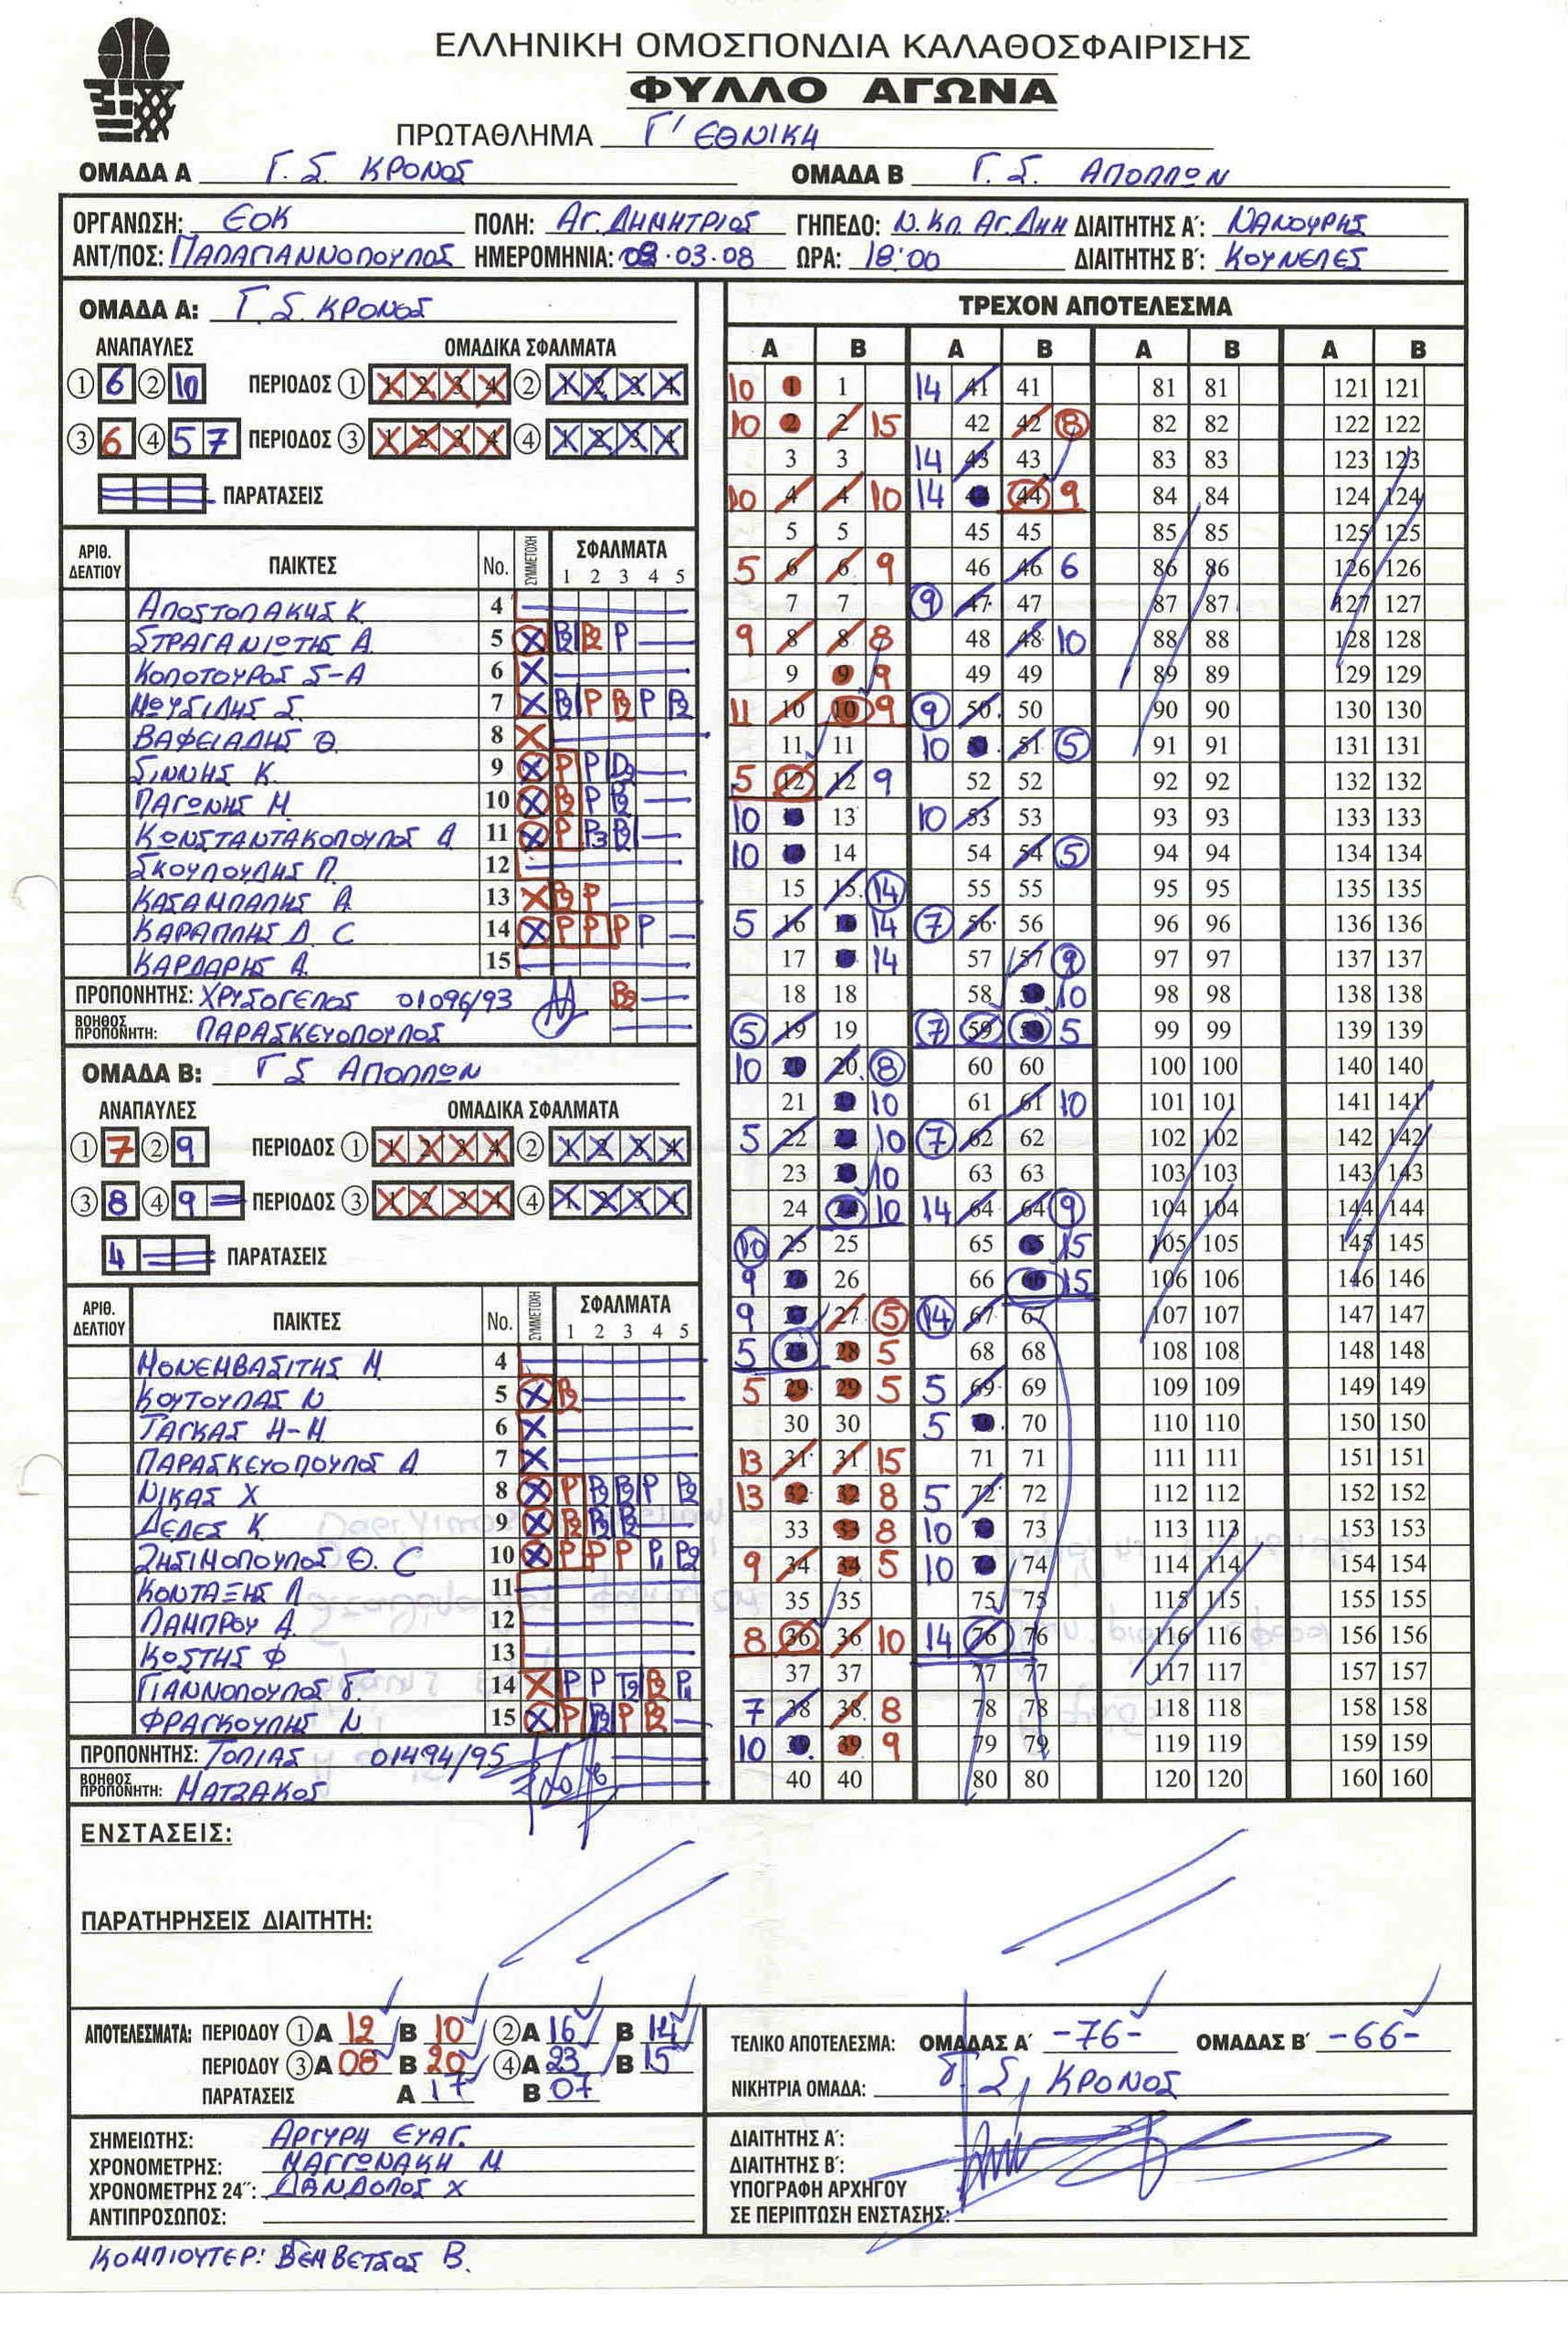 ΕΛΛΗΝΙΚΗ ΟΜΟΣΠΟΝΔΙΑ ΚΑΛΑΘΟΣΦΑΙΡΙΣΗΣ
ΦΥΛΛΟ ΑΓΩΝΑ
ΠΡΩΤΑΘΛΗΜΑ Γ' ΕΘΝΙΚΗ
ΟΜΑΔΑ Α Γ.Σ. ΚΡΟΝΟΣ ΟΜΑΔΑ Β Γ.Σ. ΑΠΟΛΛΩΝ
ΟΡΓΑΝΩΣΗ: ΕΟΚ ΠΟΛΗ: ΑΓ.ΔΗΜΗΤΡΙΟΣ ΓΗΠΕΔΟ: Ν.ΚΛ.ΑΓ.ΔΗΜ ΔΙΑΙΤΗΤΗΣ Α': ΝΑΝΟΥΡΗΣ
ΑΝΤ/ΠΟΣ: ΠΑΠΑΓΙΑΝΝΟΠΟΥΛΟΣ ΗΜΕΡΟΜΗΝΙΑ: 08.03.08 ΩΡΑ: 18:00 ΔΙΑΙΤΗΤΗΣ Β': ΚΟΥΝΕΛΕΣ
ΟΜΑΔΑ Α: Γ.Σ. ΚΡΟΝΟΣ
ΑΝΑΠΑΥΛΕΣ ΟΜΑΔΙΚΑ ΣΦΑΛΜΑΤΑ
① 6 ② 10 ΠΕΡΙΟΔΟΣ ① 1 2 3 4 ② 1 2 3 4
③ 6 ④ 5 7 ΠΕΡΙΟΔΟΣ ③ 1 2 3 4 ④ 1 2 3 4
ΠΑΡΑΤΑΣΕΙΣ
ΑΡΙΘ. ΔΕΛΤΙΟΥ ΠΑΙΚΤΕΣ No. ΣΥΜΜΕΤΟΧΗ ΣΦΑΛΜΑΤΑ 1 2 3 4 5
ΑΠΟΣΤΟΛΑΚΗΣ Κ. 4
ΣΤΡΑΓΑΝΙΩΤΗΣ Α. 5 X P2 P2 P
ΚΟΛΟΤΟΥΡΟΣ Σ-Α 6 X
ΜΩΥΣΙΔΗΣ Σ. 7 X P2 P P2 P P2
ΒΑΦΕΙΑΔΗΣ Θ. 8 X
ΣΙΝΝΗΣ Κ. 9 X P P D2
ΠΑΓΩΝΗΣ Μ. 10 X P2 P P2
ΚΩΝΣΤΑΝΤΑΚΟΠΟΥΛΟΣ Α 11 X P P3 P2
ΣΚΟΥΛΟΥΔΗΣ Π. 12
ΚΑΣΑΜΠΑΛΗΣ Α. 13 X P2 P
ΚΑΡΑΠΛΗΣ Δ. C 14 X P P P P
ΚΑΡΔΑΡΗΣ Α. 15
ΠΡΟΠΟΝΗΤΗΣ: ΧΡΥΣΟΓΕΛΟΣ 01096/93 B2
ΒΟΗΘΟΣ ΠΡΟΠΟΝΗΤΗ: ΠΑΡΑΣΚΕΥΟΠΟΥΛΟΣ
ΟΜΑΔΑ Β: Γ Σ ΑΠΟΛΛΩΝ
ΑΝΑΠΑΥΛΕΣ ΟΜΑΔΙΚΑ ΣΦΑΛΜΑΤΑ
① 7 ② 9 ΠΕΡΙΟΔΟΣ ① 1 2 3 4 ② 1 2 3 4
③ 8 ④ 9 ΠΕΡΙΟΔΟΣ ③ 1 2 3 4 ④ 1 2 3 4
4 ΠΑΡΑΤΑΣΕΙΣ
ΑΡΙΘ. ΔΕΛΤΙΟΥ ΠΑΙΚΤΕΣ No. ΣΥΜΜΕΤΟΧΗ ΣΦΑΛΜΑΤΑ 1 2 3 4 5
ΜΟΝΕΜΒΑΣΙΤΗΣ Μ 4
ΚΟΥΤΟΥΛΑΣ Ν 5 X P2
ΤΑΓΚΑΣ Η-Η 6 X
ΠΑΡΑΣΚΕΥΟΠΟΥΛΟΣ Α 7 X
ΝΙΚΑΣ Χ 8 X P P2 P2 P P2
ΔΕΔΕΣ Κ. 9 X P2 P2 P2
ΖΗΣΙΜΟΠΟΥΛΟΣ Θ. C 10 X P P P P1 P2
ΚΟΝΤΑΞΗΣ Λ 11
ΛΑΜΠΡΟΥ Α. 12
ΚΩΣΤΗΣ Φ 13
ΓΙΑΝΝΟΠΟΥΛΟΣ Γ. 14 X P P T2 P2 P1
ΦΡΑΓΚΟΥΛΗΣ Ν 15 X P P2 P P2
ΠΡΟΠΟΝΗΤΗΣ: ΤΟΛΙΑΣ 01494/95
ΒΟΗΘΟΣ ΠΡΟΠΟΝΗΤΗ: ΜΑΤΖΑΚΟΣ
ΤΡΕΧΟΝ ΑΠΟΤΕΛΕΣΜΑ
Α Β Α Β Α Β Α Β
10 1 1 14 41 41 81 81 121 121
10 2 2 15 42 42 8 82 82 122 122
3 3 14 43 43 83 83 123 123
10 4 4 10 14 44 44 9 84 84 124 124
5 5 45 45 85 85 125 125
5 6 6 9 46 46 6 86 86 126 126
7 7 9 47 47 87 87 127 127
9 8 8 8 48 48 10 88 88 128 128
9 9 9 49 49 89 89 129 129
11 10 10 9 9 50 50 90 90 130 130
11 11 10 51 51 5 91 91 131 131
5 12 12 9 52 52 92 92 132 132
10 13 13 10 53 53 93 93 133 133
10 14 14 54 54 5 94 94 134 134
15 15 14 55 55 95 95 135 135
5 16 16 14 7 56 56 96 96 136 136
17 17 14 57 57 9 97 97 137 137
18 18 58 58 10 98 98 138 138
5 19 19 7 59 59 5 99 99 139 139
10 20 20 8 60 60 100 100 140 140
21 21 10 61 61 10 101 101 141 141
5 22 22 10 7 62 62 102 102 142 142
23 23 10 63 63 103 103 143 143
24 24 10 14 64 64 9 104 104 144 144
10 25 25 65 65 15 105 105 145 145
9 26 26 66 66 15 106 106 146 146
9 27 27 5 14 67 67 107 107 147 147
5 28 28 5 68 68 108 108 148 148
5 29 29 5 5 69 69 109 109 149 149
30 30 5 70 70 110 110 150 150
13 31 31 15 71 71 111 111 151 151
13 32 32 8 5 72 72 112 112 152 152
33 33 8 10 73 73 113 113 153 153
9 34 34 5 10 74 74 114 114 154 154
35 35 75 75 115 115 155 155
8 36 36 10 14 76 76 116 116 156 156
37 37 77 77 117 117 157 157
7 38 38 8 78 78 118 118 158 158
10 39 39 9 79 79 119 119 159 159
40 40 80 80 120 120 160 160
ΕΝΣΤΑΣΕΙΣ:
ΠΑΡΑΤΗΡΗΣΕΙΣ ΔΙΑΙΤΗΤΗ:
ΑΠΟΤΕΛΕΣΜΑΤΑ: ΠΕΡΙΟΔΟΥ ① Α 12 Β 10 ② Α 16 Β 14
ΠΕΡΙΟΔΟΥ ③ Α 08 Β 20 ④ Α 23 Β 15
ΠΑΡΑΤΑΣΕΙΣ Α 17 Β 07
ΤΕΛΙΚΟ ΑΠΟΤΕΛΕΣΜΑ: ΟΜΑΔΑΣ Α' -76- ΟΜΑΔΑΣ Β' -66-
ΝΙΚΗΤΡΙΑ ΟΜΑΔΑ: Γ.Σ. ΚΡΟΝΟΣ
ΣΗΜΕΙΩΤΗΣ: ΑΡΓΥΡΗ ΕΥΑΓ.
ΧΡΟΝΟΜΕΤΡΗΣ: ΜΑΓΓΩΝΑΚΗ Μ
ΧΡΟΝΟΜΕΤΡΗΣ 24": ΔΑΝΔΟΛΟΣ Χ
ΑΝΤΙΠΡΟΣΩΠΟΣ:
ΔΙΑΙΤΗΤΗΣ Α':
ΔΙΑΙΤΗΤΗΣ Β':
ΥΠΟΓΡΑΦΗ ΑΡΧΗΓΟΥ
ΣΕ ΠΕΡΙΠΤΩΣΗ ΕΝΣΤΑΣΗΣ:
ΚΟΜΠΙΟΥΤΕΡ: ΒΕΜΒΕΤΣΟΣ Β.